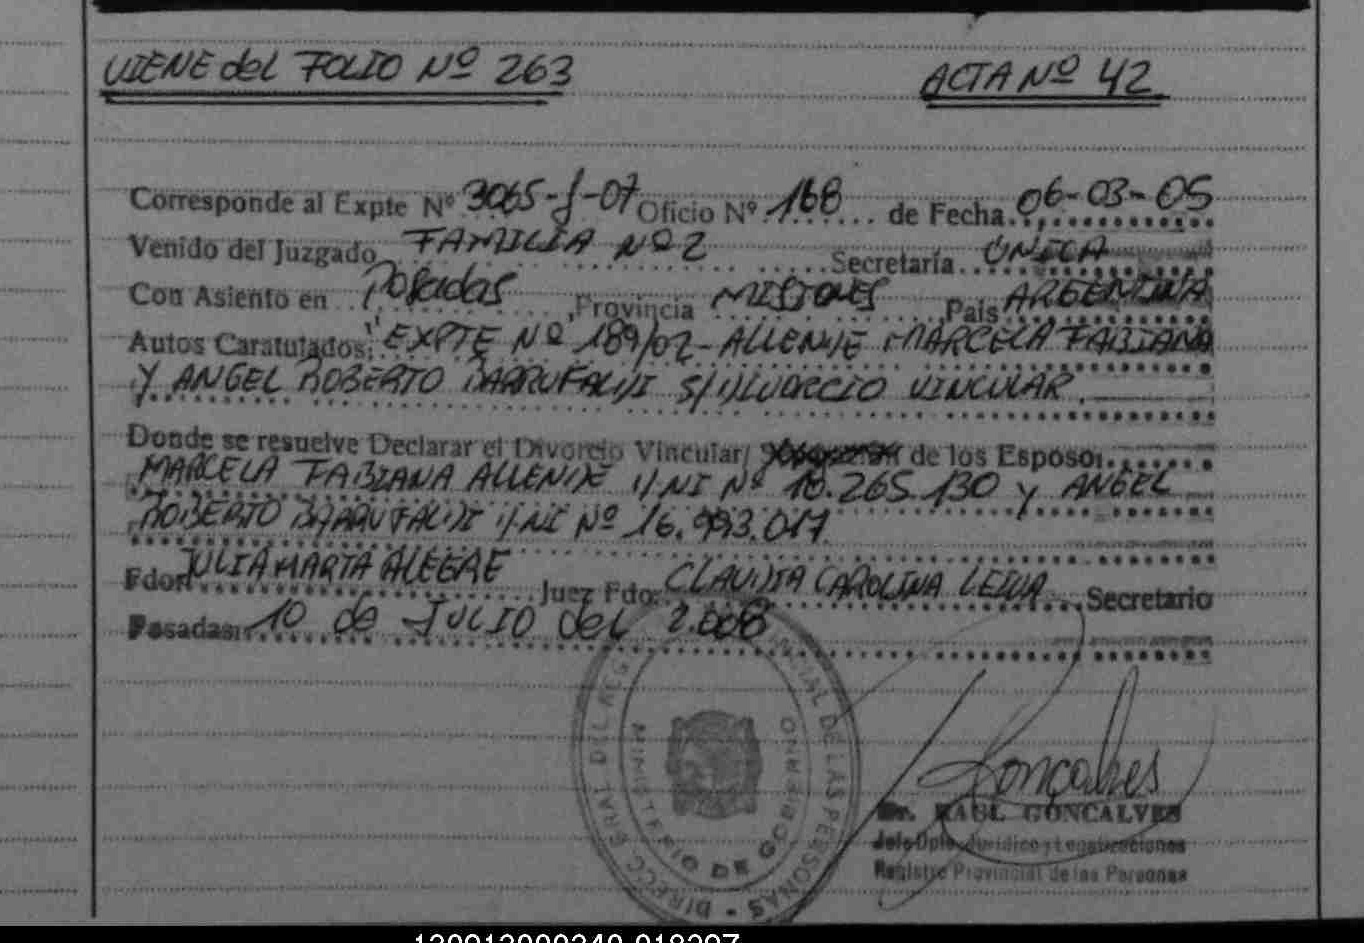 VIENE del FOLIO Nº 263
ACTA Nº 42
Corresponde al Expte Nº 3065-J-07 Oficio Nº 168 de Fecha 06-03-05
Venido del Juzgado FAMILIA Nº 2 Secretaría ÚNICA
Con Asiento en Posadas, Provincia MISIONES País ARGENTINA
Autos Caratulados: "EXPTE Nº 189/02- ALLENDE MARCELA FABIANA
Y ANGEL ROBERTO BARRUFALDI S/DIVORCIO VINCULAR.
Donde se resuelve Declarar el Divorcio Vincular/ de los Esposo:
MARCELA FABIANA ALLENDE D.N.I Nº 18.265.130 y ANGEL
ROBERTO BARRUFALDI D.NI Nº 16.993.017.
Fdor JULIA MARTA ALEGRE Juez Fdo: CLAUDIA CAROLINA LEIVA Secretario
Posadas: 10 de JULIO del 2.008
DIRECC GRAL DEL REG PROVINCIAL DE LAS PERSONAS -
MINISTERIO DE GOBIERNO
Goncalves
Dr. RAUL GONCALVES
Jefe Dpto. Jurídico y Legalizaciones
Registro Provincial de las Personas